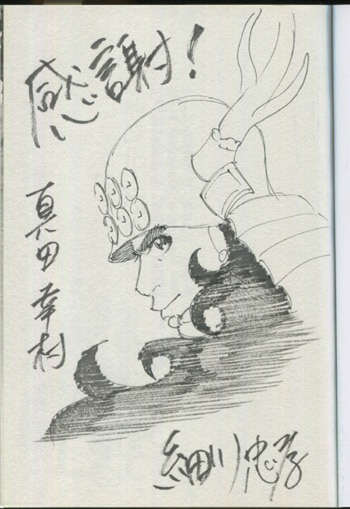 感謝!
真田幸村
細川忠孝